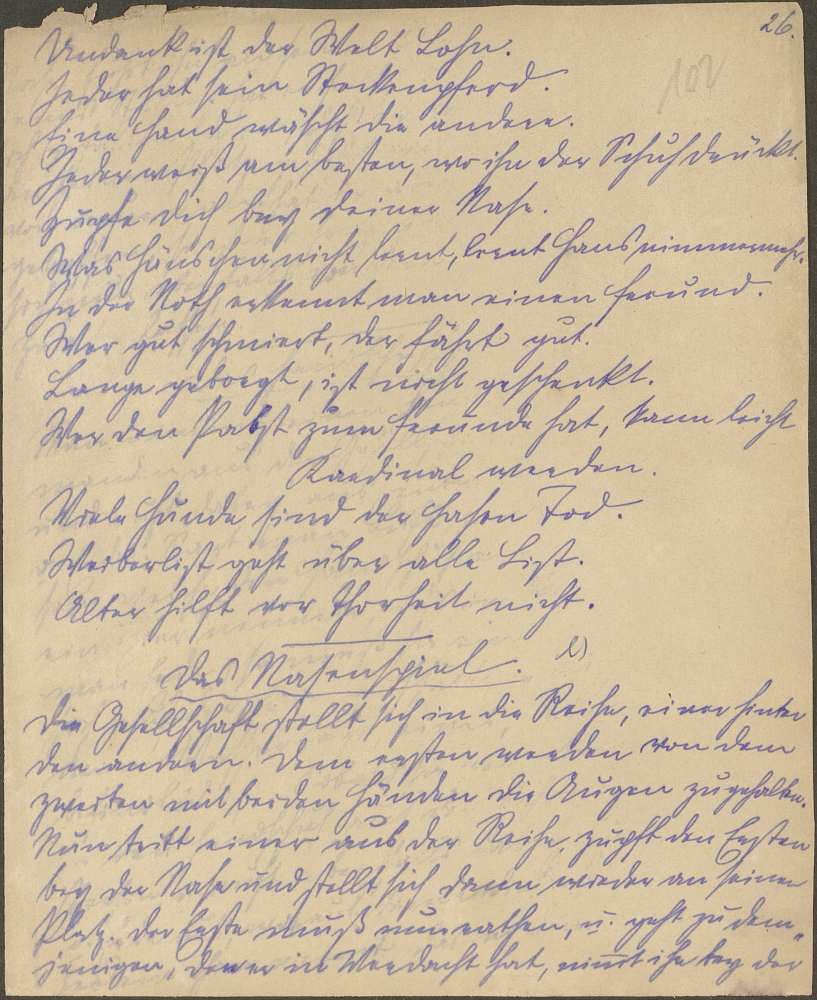 26.
102
Undank ist der Welt Lohn.
Jeder hat sein Steckenpferd.
Eine Hand wäscht die andere.
Jeder weiß am besten, wo ihn der Schuh drückt.
Zupfe dich bey deiner Nase.
Was Hänschen nicht lernt, lernt Hans nimmermehr.
In der Noth erkennt man einen Freund.
Wer gut schmiert, der fährt gut.
Lange geborgt, ist nicht geschenkt.
Wer den Pabst zum Freunde hat, kann leicht
Kardinal werden.
Viele Hunde sind der Hasen Tod.
Weiberlist geht über alle List.
Alter hilft vor Thorheit nicht.
Das Nasenspiel. e)
Die Gesellschaft stellt sich in die Reihe, einer hinter
den andern. Dem ersten werden von dem
zweiten mit beiden Händen die Augen zugehalten.
Nun tritt einer aus der Reihe, zupft den Ersten
bey der Nase und stellt sich dann wieder an seinen
Platz. Der Erste muß nun rathen, u. geht zu dem-
jenigen, den er in Verdacht hat, nimt ihn bey der